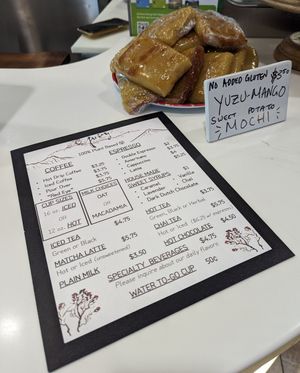 NO ADDED GLUTEN $2.50
YUZU-MANGO
SWEET POTATO
MOCHI
100% Plant Based
COFFEE
Hot Drip Coffee $3.25
Iced Coffee
Pour Over
"Red Eye"
ESPRESSO
Double Espresso
Americano
Cappuccino
Latte
CUP SIZES
16 oz. ICED
OR
12 oz. HOT
MILK CHOICES
OAT
OR
MACADAMIA
HOUSE MADE
SWEET SYRUPS
Caramel
Vanilla
Lavender
Chai
Dark Dutch Chocolate
ICED TEA $4.75
Green or Black
MATCHA LATTE $5.75
Hot or Iced (unsweetened)
PLAIN MILK $3.50
HOT TEA $5.75
Green, Black or Herbal
CHAI TEA $5.75
Hot or Iced ($6.25) or
HOT CHOCOLATE $4.75
SPECIALTY BEVERAGES $4.50
Please inquire about our daily flavors
WATER TO-GO CUP 50¢